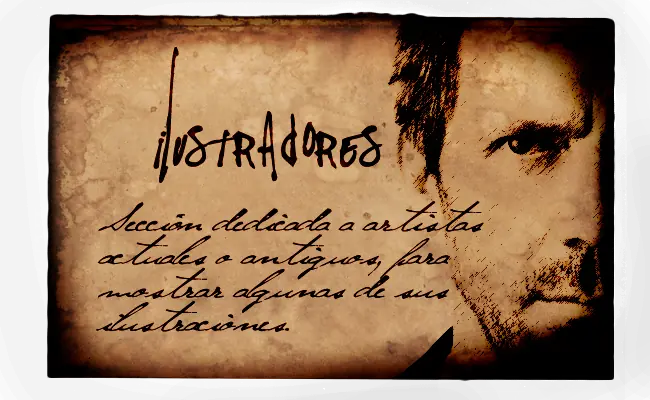 ilUSTRADORES
Sección dedicada a artistas
actuales o antiguos, para
mostrar algunas de sus
ilustraciones.